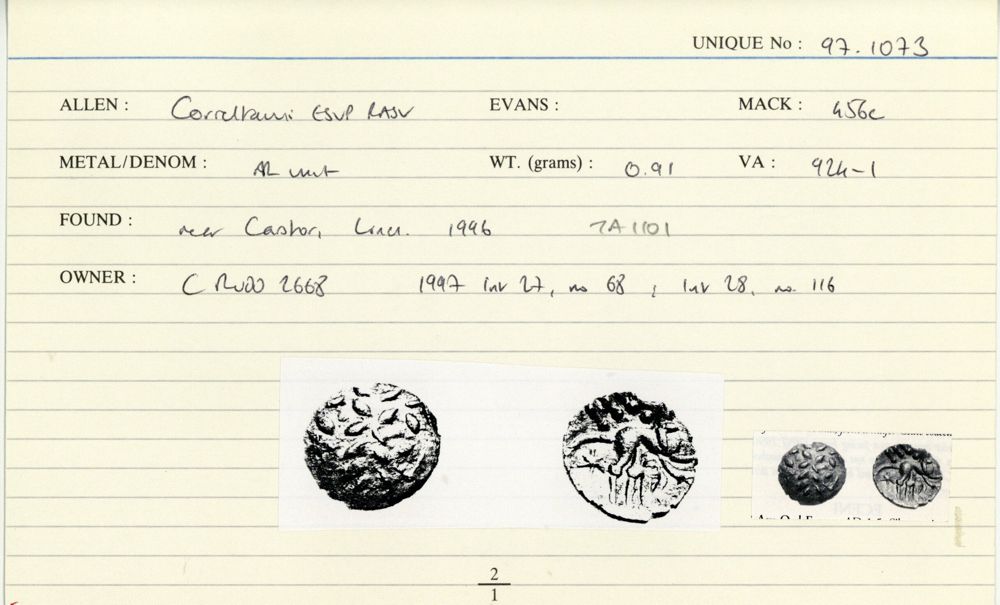 UNIQUE No : 97.1073
ALLEN : Correltauvi ESVP RASV EVANS : MACK : 456c
METAL/DENOM : AR unit WT. (grams) : 0.91 VA : 924-1
FOUND : near Caistor, Lincs. 1996 TA1101
OWNER : C RUDD 2668 1997 list 27, no 68 ; list 28, no. 116
2
1